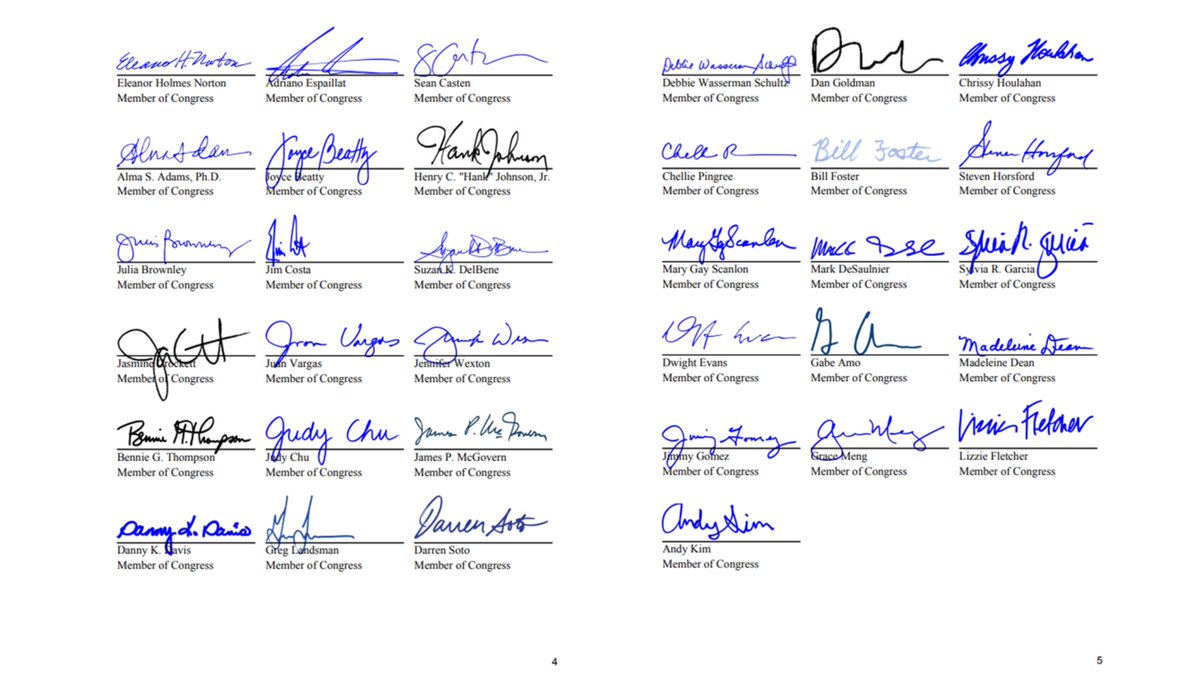 Eleanor H Norton
Eleanor Holmes Norton Adriano Espaillat Sean Casten
Member of Congress Member of Congress Member of Congress
Alma S Adams Joyce Beatty Hank Johnson
Alma S. Adams, Ph.D. Joyce Beatty Henry C. "Hank" Johnson, Jr.
Member of Congress Member of Congress Member of Congress
Julia Brownley
Julia Brownley Jim Costa Suzan K. DelBene
Member of Congress Member of Congress Member of Congress
Juan Vargas
Jasmine Crockett Juan Vargas Jennifer Wexton
Member of Congress Member of Congress Member of Congress
Bennie G. Thompson Judy Chu James P. McGovern
Bennie G. Thompson Judy Chu James P. McGovern
Member of Congress Member of Congress Member of Congress
Danny K. Davis Darren Soto
Danny K. Davis Greg Landsman Darren Soto
Member of Congress Member of Congress Member of Congress
4
Debbie Wasserman Schultz Chrissy Houlahan
Debbie Wasserman Schultz Dan Goldman Chrissy Houlahan
Member of Congress Member of Congress Member of Congress
Bill Foster Steven Horsford
Chellie Pingree Bill Foster Steven Horsford
Member of Congress Member of Congress Member of Congress
Mary Gay Scanlon Sylvia R. Garcia
Mary Gay Scanlon Mark DeSaulnier Sylvia R. Garcia
Member of Congress Member of Congress Member of Congress
Madeleine Dean
Dwight Evans Gabe Amo Madeleine Dean
Member of Congress Member of Congress Member of Congress
Jimmy Gomez Grace Meng Lizzie Fletcher
Jimmy Gomez Grace Meng Lizzie Fletcher
Member of Congress Member of Congress Member of Congress
Andy Kim
Andy Kim
Member of Congress
5